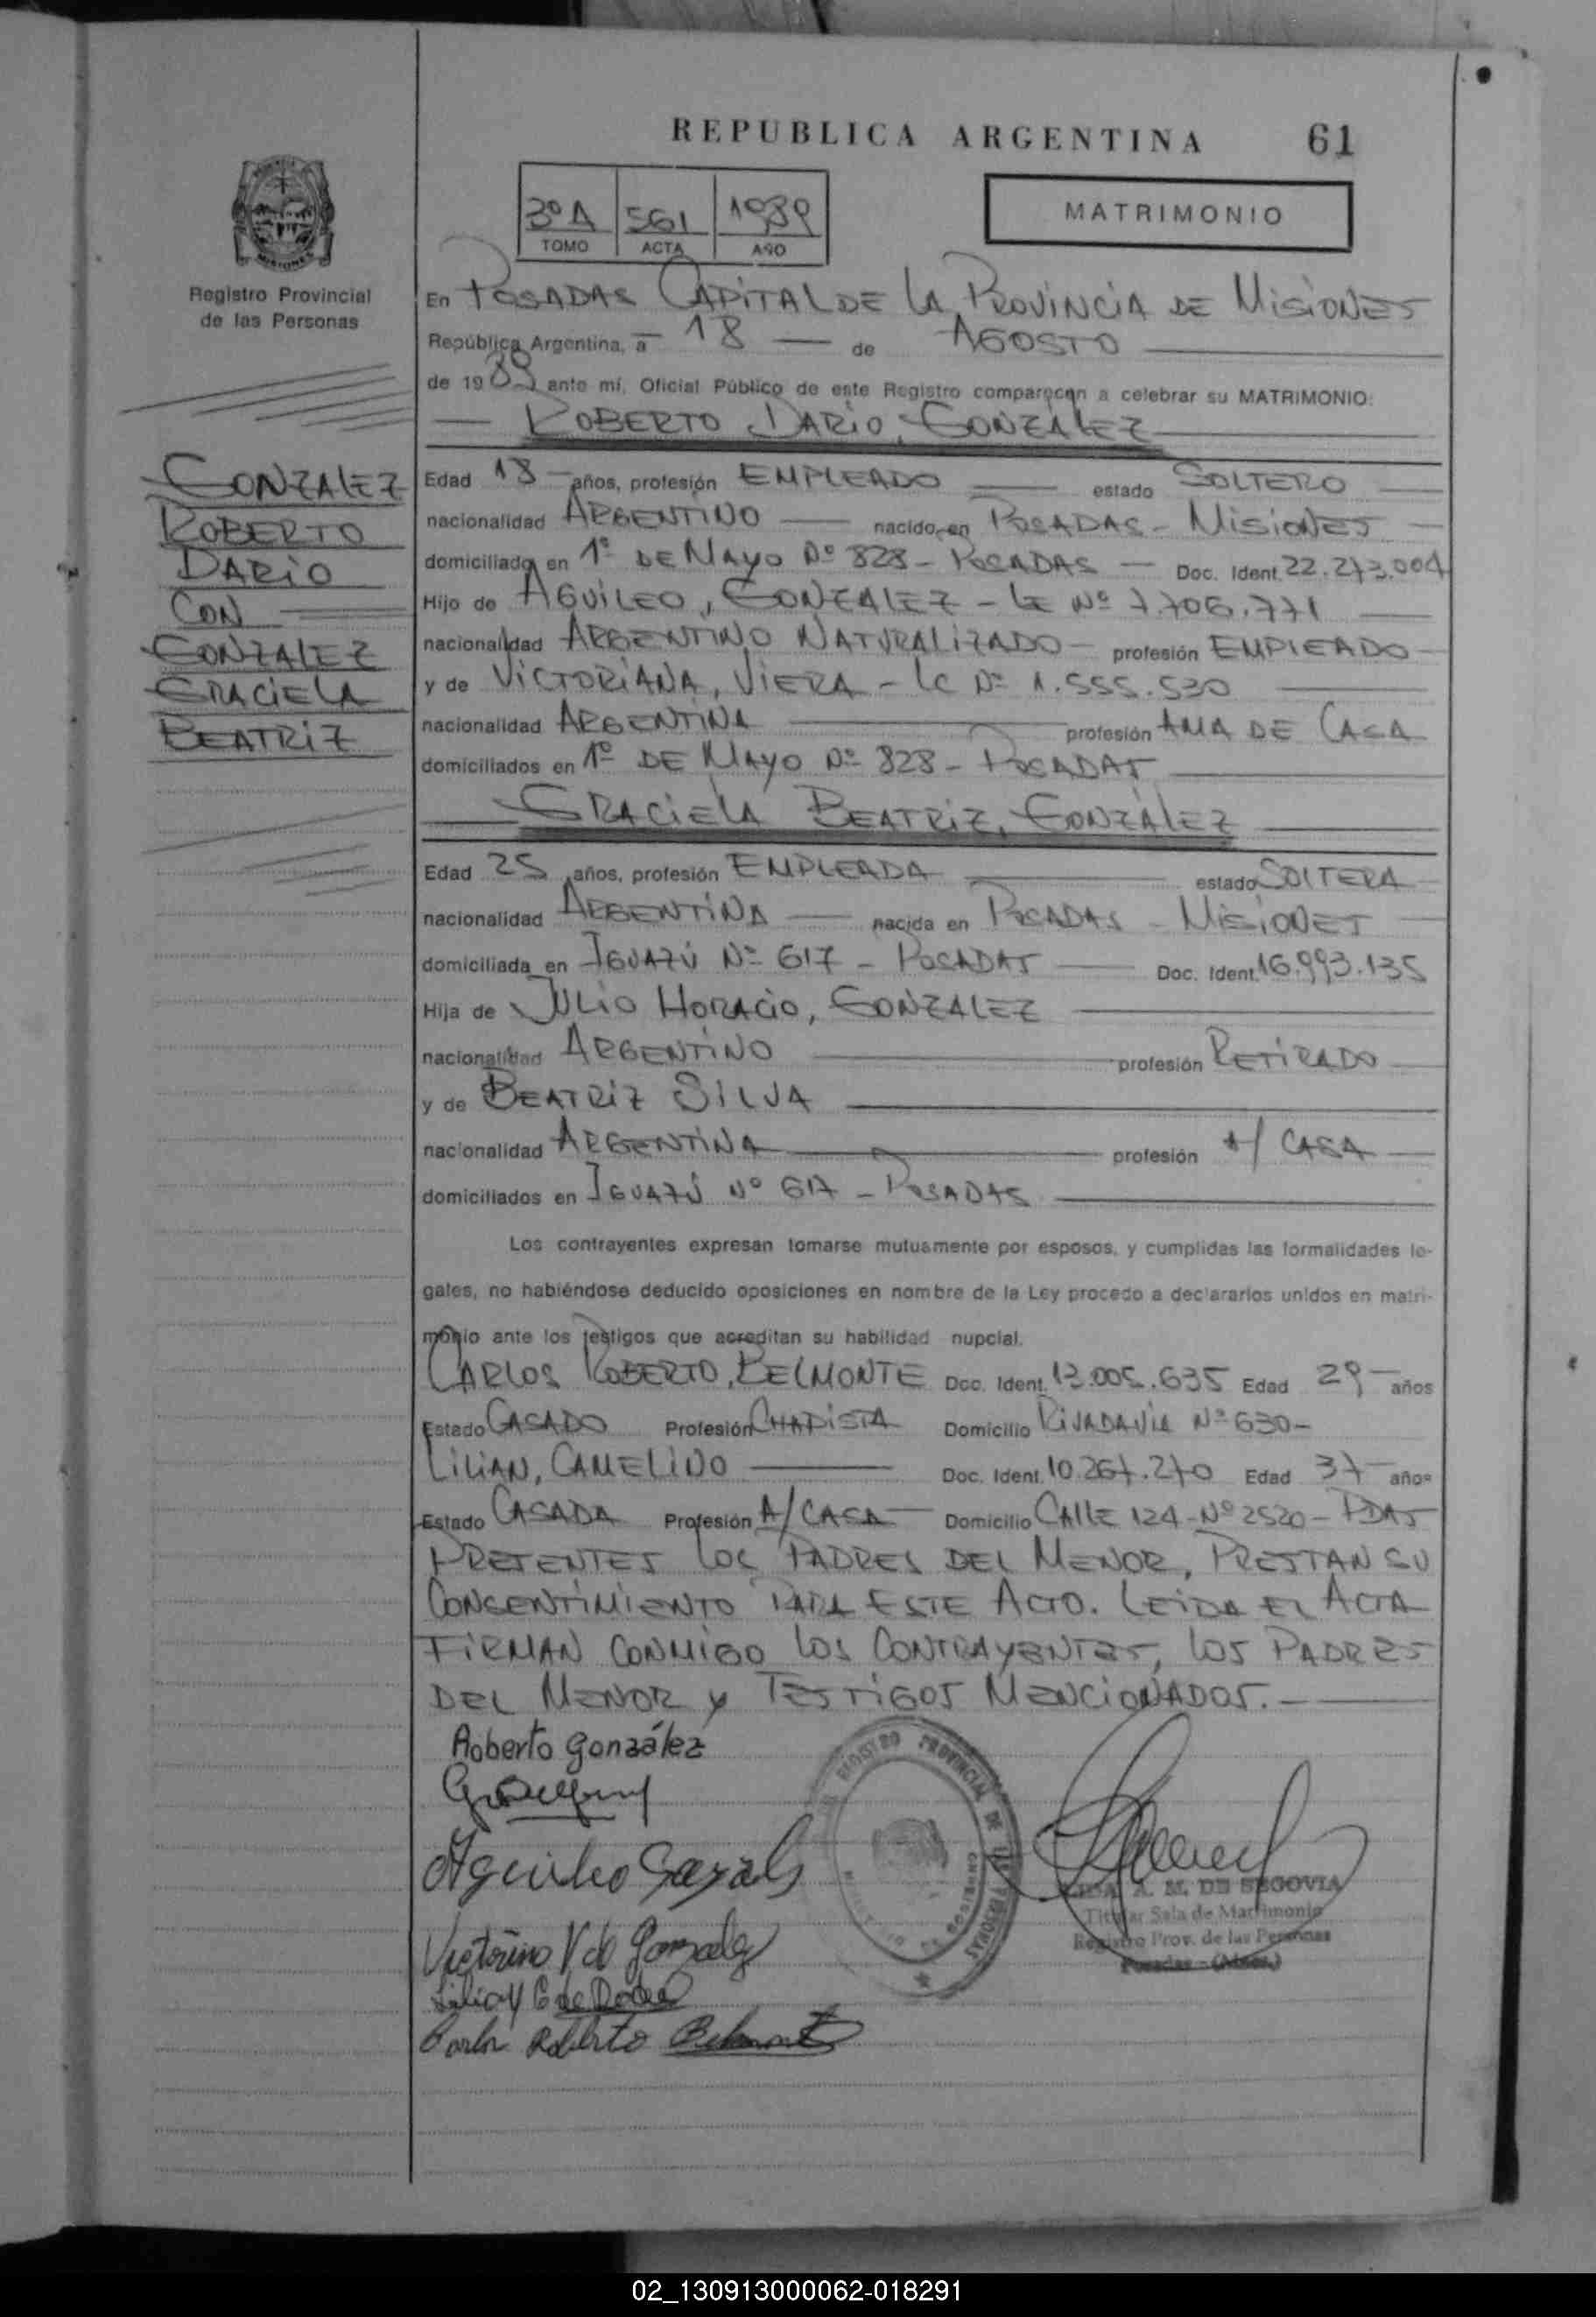 REPUBLICA ARGENTINA 61
3º A 561 1989
TOMO ACTA AÑO
MATRIMONIO
Registro Provincial
de las Personas
GONZALEZ
ROBERTO
DARIO
CON
GONZALEZ
GRACIELA
BEATRIZ
En POSADAS CAPITAL DE LA PROVINCIA DE MISIONES
República Argentina, a 18 — de AGOSTO
de 1989 ante mí, Oficial Público de este Registro comparecen a celebrar su MATRIMONIO:
— ROBERTO DARIO, GONZALEZ
Edad 18 — años, profesión EMPLEADO — estado SOLTERO —
nacionalidad ARGENTINO — nacido en POSADAS - MISIONES —
domiciliado en 1º DE MAYO Nº 828 - POSADAS — Doc. Ident. 22.273.004
Hijo de AGUILEO, GONZALEZ - LE Nº 7.706.771 —
nacionalidad ARGENTINO NATURALIZADO - profesión EMPLEADO -
y de VICTORIANA, VIERA - LC Nº 1.555.530 —
nacionalidad ARGENTINA — profesión AMA DE CASA
domiciliados en 1º DE MAYO Nº 828 - POSADAS —
— GRACIELA BEATRIZ, GONZALEZ —
Edad 25 años, profesión EMPLEADA — estado SOLTERA
nacionalidad ARGENTINA — nacida en POSADAS - MISIONES —
domiciliada en IGUAZÚ Nº 617 - POSADAS — Doc. Ident. 16.993.135
Hija de JULIO HORACIO, GONZALEZ —
nacionalidad ARGENTINO — profesión RETIRADO —
y de BEATRIZ SILVA —
nacionalidad ARGENTINA — profesión A/ CASA —
domiciliados en IGUAZÚ Nº 617 - POSADAS —
Los contrayentes expresan tomarse mutuamente por esposos, y cumplidas las formalidades le-
gales, no habiéndose deducido oposiciones en nombre de la Ley procedo a declararlos unidos en matri-
monio ante los testigos que acreditan su habilidad nupcial.
CARLOS ROBERTO, BELMONTE Doc. Ident. 13.005.635 Edad 29 — años
Estado CASADO Profesión CHAPISTA Domicilio RIVADAVIA Nº 630 -
LILIAN, CAMELINO — Doc. Ident. 10.267.270 Edad 37 — años
Estado CASADA Profesión A/CASA — Domicilio CALLE 124 - Nº 2520 - PDAS
PRESENTES LOS PADRES DEL MENOR, PRESTAN SU
CONSENTIMIENTO PARA ESTE ACTO. LEIDA EL ACTA
FIRMAN CONMIGO LOS CONTRAYENTES, LOS PADRES
DEL MENOR Y TESTIGOS MENCIONADOS. —
Roberto gonzález
Victorina V de Gonzalez
Carlos Roberto Belmonte
REGISTRO PROVINCIAL DE LAS PERSONAS
A. M. DE SEGOVIA
Titular Sala de Matrimonio
Registro Prov. de las Personas
Posadas - (Mnes.)
02_130913000062-018291